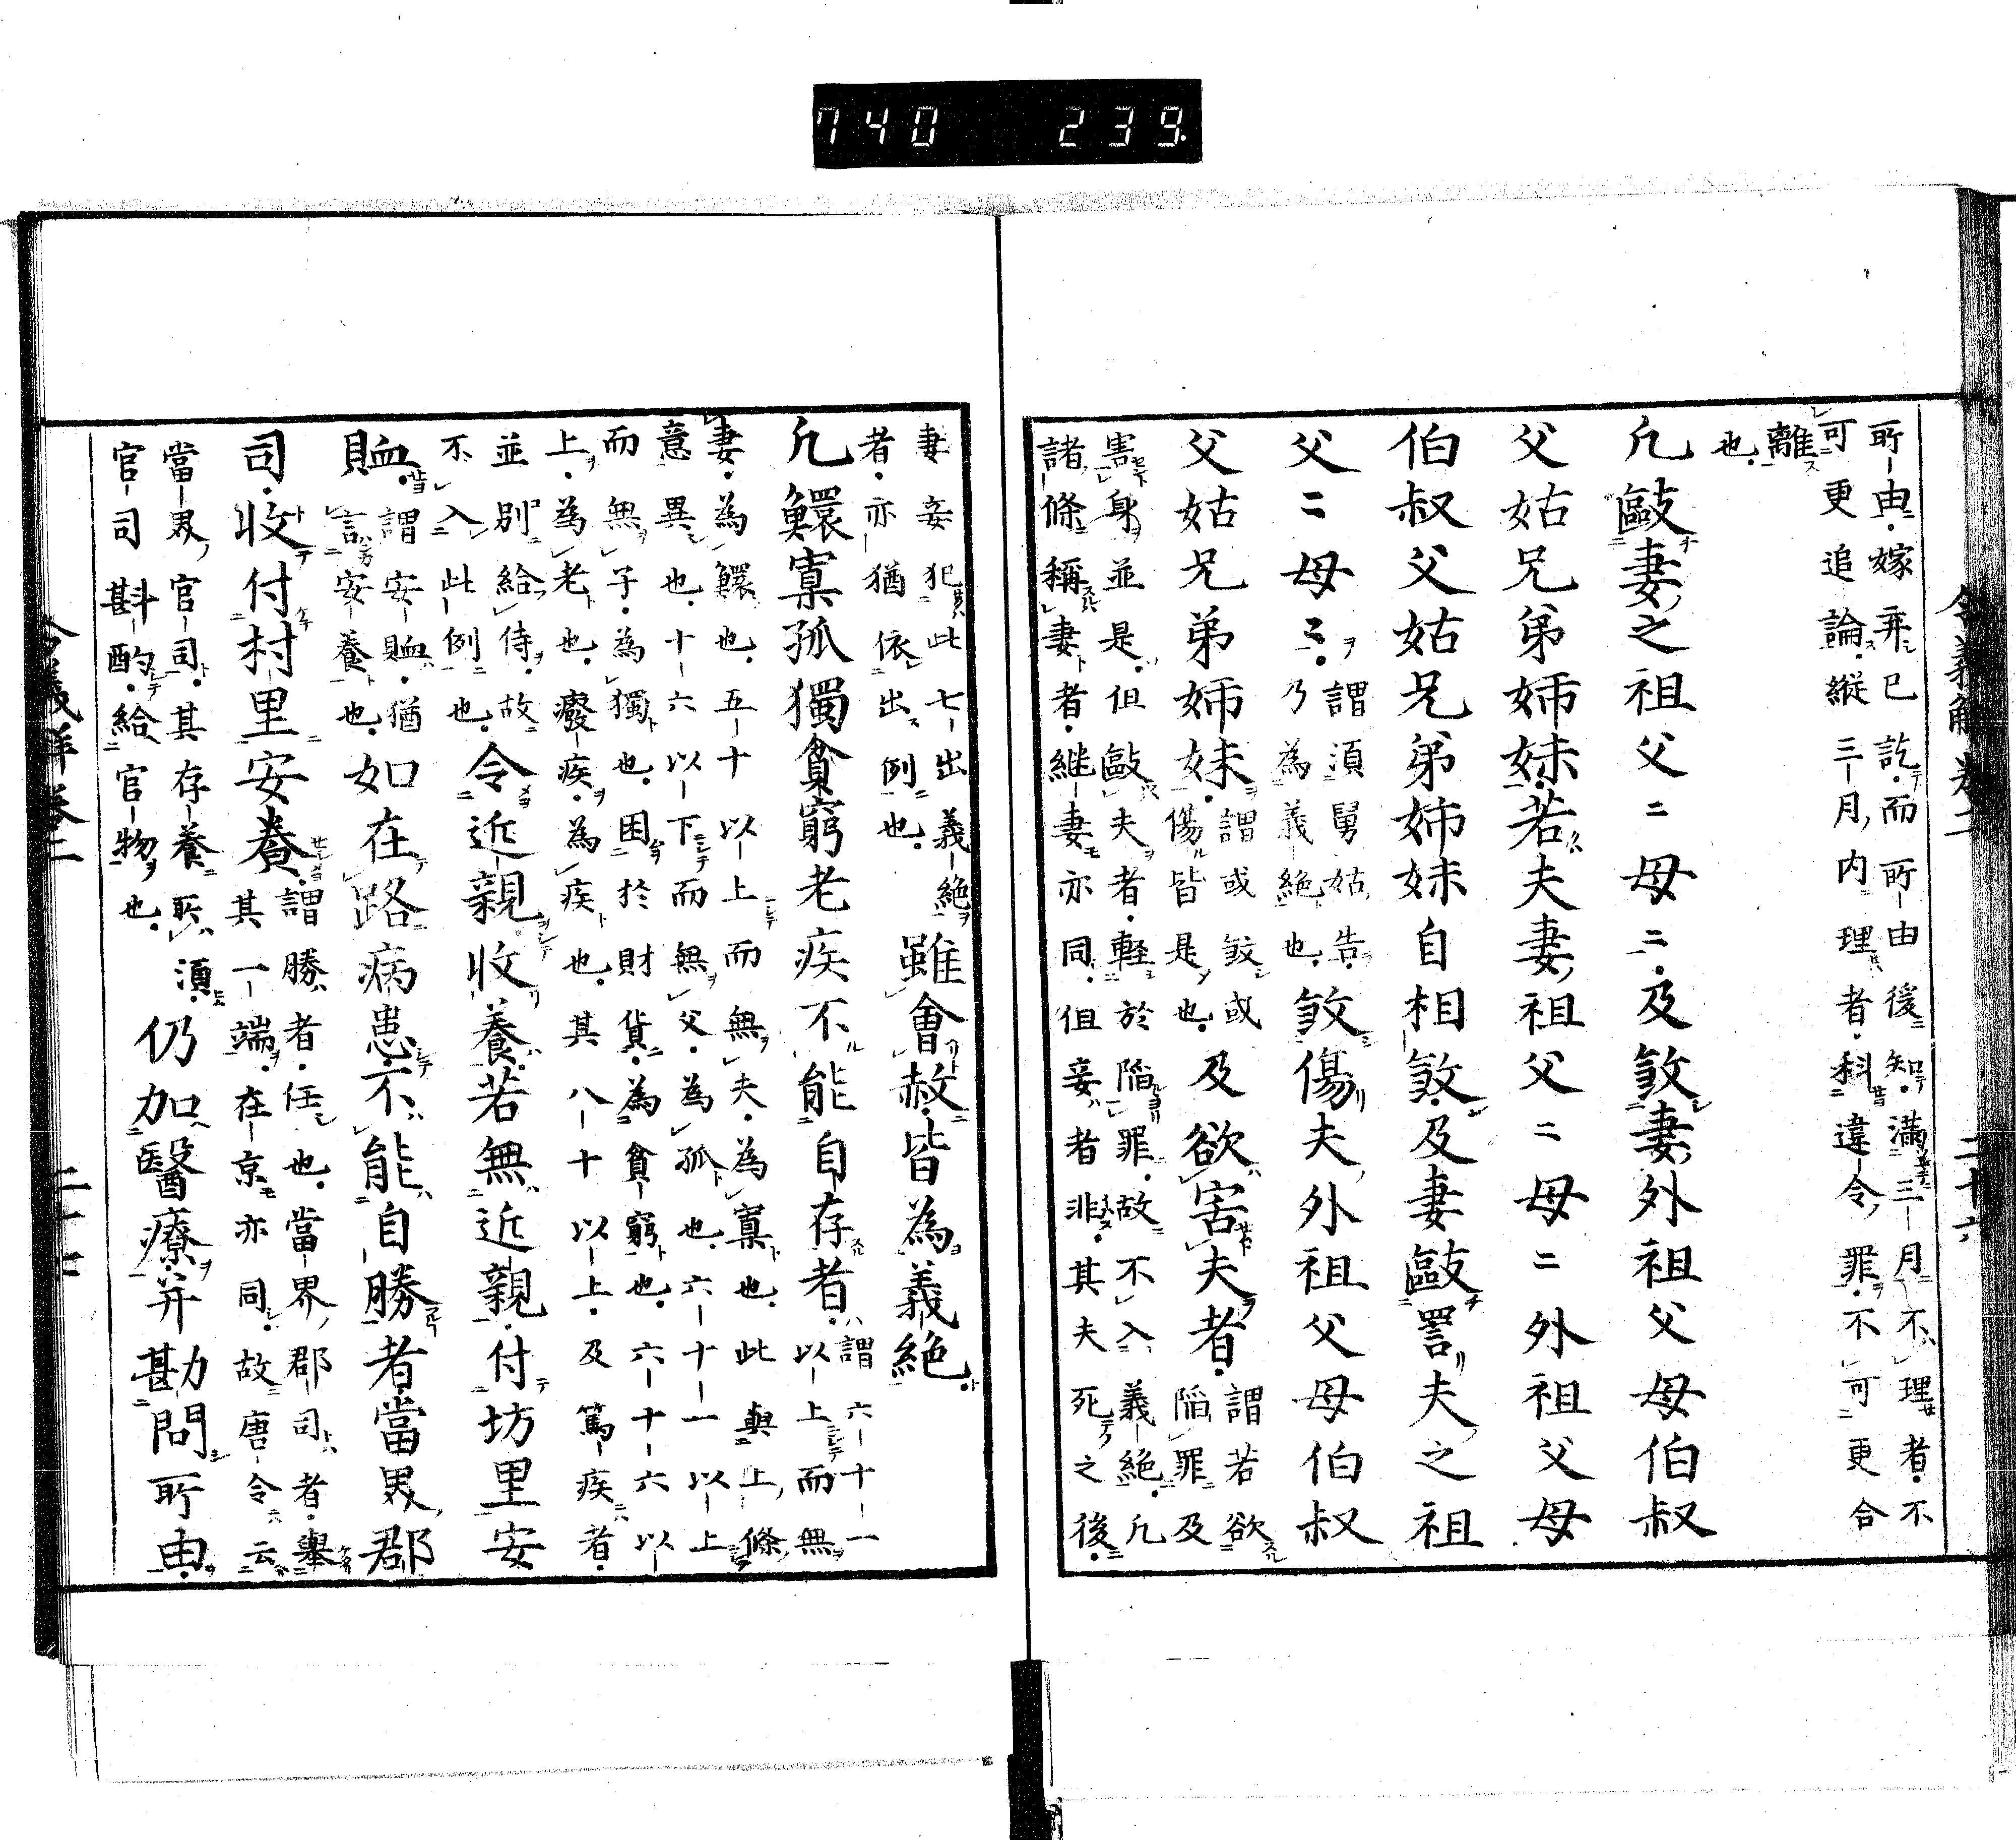 740 239
所由。嫁弃已訖。而所由後知。滿三月不理者。不
可更追論。縱三月內理者。科違令罪。不可更合
離
也。
凢毆妻之祖父二母二。及敓妻外祖父母伯叔
父姑兄弟姉妹。若夫妻祖父二母二外祖父母
伯叔父姑兄弟姉妹自相敓。及妻毆詈夫之祖
父二母二。
謂須舅姑告。
乃為義絶也。
敓傷夫外祖父母伯叔
父姑兄弟姉妹。
謂或敓或
傷皆是也。
及欲害夫者。
謂若欲
陷罪及
害身並是。但毆夫者。軽於陥罪。故不入義絶。凢
諸條稱妻者。継妻亦同。但妾者非。其夫死之後。
妻妾犯此七出義絶
者。亦猶依出例也。
雖會赦。皆為義絶。
凢鰥寡孤獨貧窮老疾不能自存者。
謂六十一
以上而無
妻。為鰥也。五十以上而無夫。為寡也。此與上條
意異也。十六以下而無父。為孤也。六十一以上
而無子。為獨也。困於財貨。為貧窮也。六十六以
上。為老也。癈疾。為疾也。其八十以上。及篤疾者。
並別給侍。故
不入此例也。
令近親收養。若無近親。付坊里安
賉。
謂安賉。猶
言安養也。
如在路病患。不能自勝者。當界郡
司。收付村里安養。
謂勝者。任也。當界郡司者。舉
其一端。在京亦同。故唐令云
當界官司。其存養所須。
官司斟酌。給官物也。
仍加醫療。并勘問所由。
令義解卷二
二十六